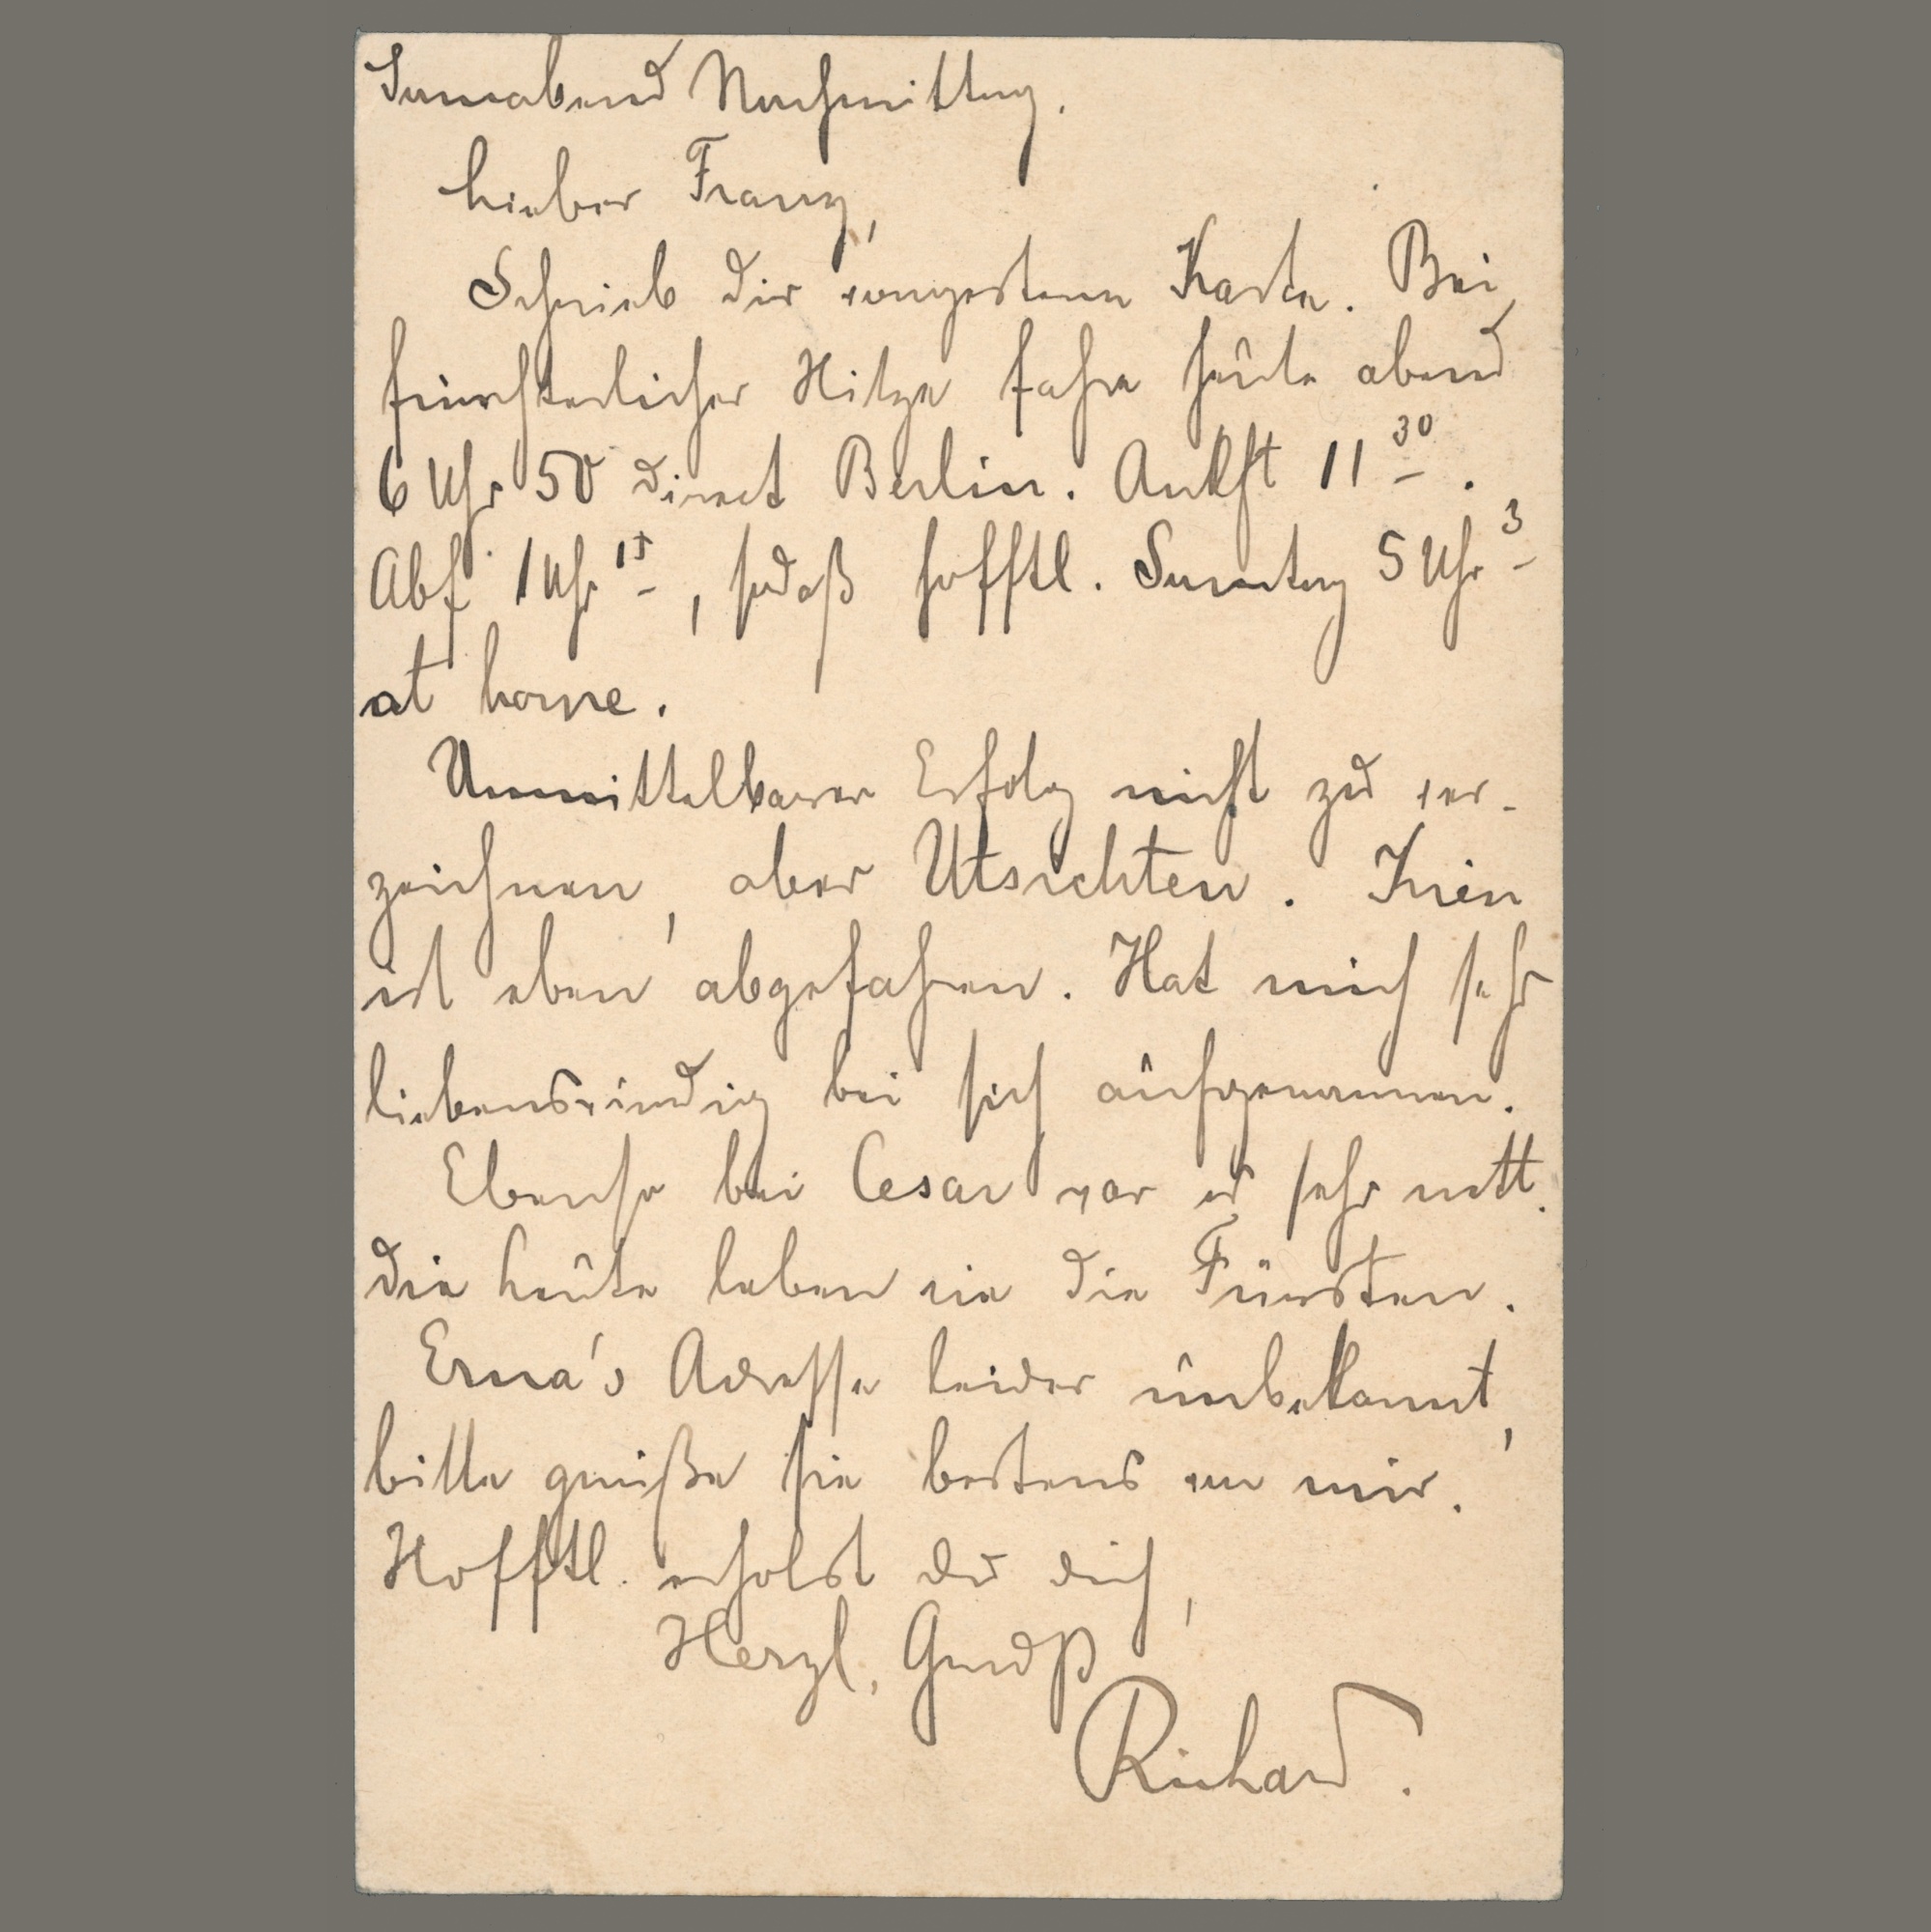 Sonnabend Nachmittag.
Lieber Franz,
Schrieb dir vorgestern Karte. Bei
fürchterlicher Hitze fahre heute abend
6 Uhr 50 direct Berlin. Ankft 11 30.
Abf 1 Uhr 15, sodaß hofftl. Sonntag 5 Uhr 3
at home.
Unmittelbarer Erfolg nicht zu ver-
zeichnen, aber Utsichten.
ist eben abgefahren. Hat mich sehr
liebenswürdig bei sich aufgenommen.
Ebenso bei Cesar war es sehr nett.
Die Leute leben wie die Fürsten.
Erna's Adresse leider unbekannt,
bitte grüße sie bestens von mir.
Hofftl. erholst du dich,
Herzl. Gruß
Richard.